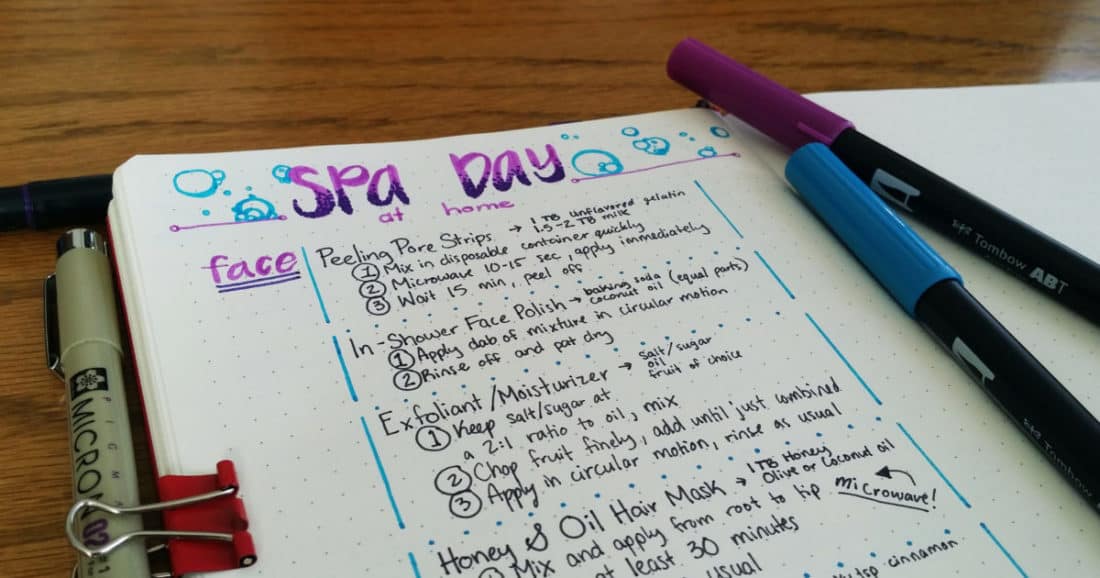 SPA DAY
at home
face
Peeling Pore Strips → 1 TB unflavored gelatin
1.5-2 TB milk
① Mix in disposable container quickly
② Microwave 10-15 sec, apply immediately
③ Wait 15 min, peel off
In-Shower Face Polish → baking soda
coconut oil (equal parts)
① Apply dab of mixture in circular motion
② Rinse off and pat dry
Exfoliant/Moisturizer → salt/sugar
oil
fruit of choice
① Keep salt/sugar at
a 2:1 ratio to oil, mix
② Chop fruit finely, add until just combined
③ Apply in circular motion, rinse as usual
Honey & Oil Hair Mask → 1 TB Honey
Olive or Coconut oil
① Mix and apply from root to tip
microwave!
at least 30 minutes
usual
tsp cinnamon
PIGMA
MICRON
02
Tombow ABT
Tombow